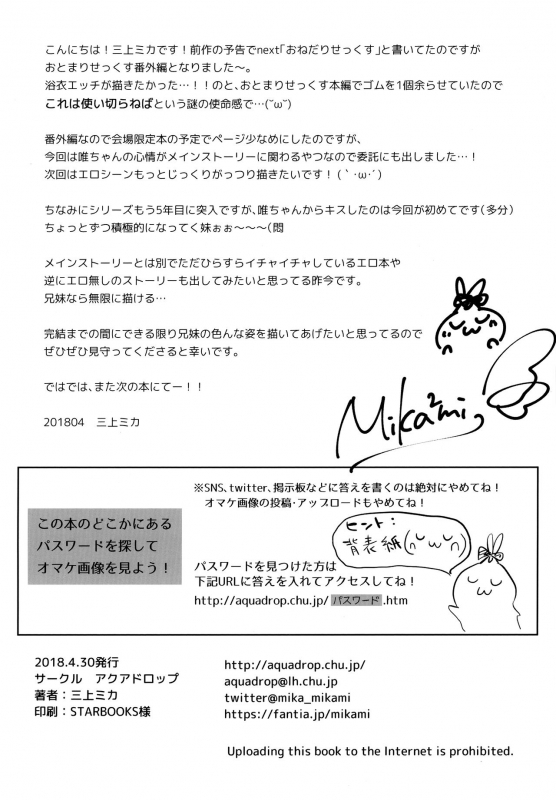 こんにちは！三上ミカです！前作の予告でnext「おねだりせっくす」と書いてたのですが
おとまりせっくす番外編となりました～。
浴衣エッチが描きたかった…！！のと、おとまりせっくす本編でゴムを1個余らせていたので
これは使い切らねばという謎の使命感で…(˘ω˘)
番外編なので会場限定本の予定でページ少なめにしたのですが、
今回は唯ちゃんの心情がメインストーリーに関わるやつなので委託にも出しました…！
次回はエロシーンもっとじっくりがっつり描きたいです！(｀･ω･´)
ちなみにシリーズもう5年目に突入ですが、唯ちゃんからキスしたのは今回が初めてです（多分）
ちょっとずつ積極的になってく妹ぉぉ～～～（悶
メインストーリーとは別でただひらすらイチャイチャしているエロ本や
逆にエロ無しのストーリーも出してみたいと思ってる昨今です。
兄妹なら無限に描ける…
完結までの間にできる限り兄妹の色んな姿を描いてあげたいと思ってるので
ぜひぜひ見守ってくださると幸いです。
ではでは、また次の本にてー！！
201804　三上ミカ
Mika2mi
※SNS、twitter、掲示板などに答えを書くのは絶対にやめてね！
オマケ画像の投稿・アップロードもやめてね！
この本のどこかにある
パスワードを探して
オマケ画像を見よう！
ヒント：
背表紙(∩˘ω˘∩)
パスワードを見つけた方は
下記URLに答えを入れてアクセスしてね！
http://aquadrop.chu.jp/パスワード.htm
2018.4.30発行
サークル　アクアドロップ
著者：三上ミカ
印刷：STARBOOKS様
http://aquadrop.chu.jp/
aquadrop@lh.chu.jp
twitter@mika_mikami
https://fantia.jp/mikami
Uploading this book to the Internet is prohibited.